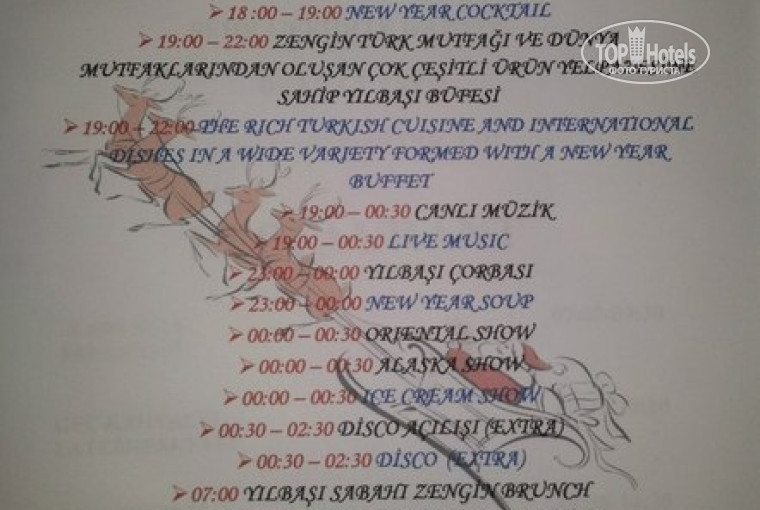 ➤ 18 :00 – 19:00 NEW YEAR COCKTAIL
➤ 19:00 – 22:00 ZENGİN TÜRK MUTFAĞI VE DÜNYA
MUTFAKLARINDAN OLUŞAN ÇOK ÇEŞİTLİ ÜRÜN YELPAZESİNE
SAHİP YILBAŞI BÜFESİ
➤ 19:00 – 22:00 THE RICH TURKISH CUISINE AND INTERNATIONAL
DISHES IN A WIDE VARIETY FORMED WITH A NEW YEAR
BUFFET
➤ 19:00 – 00:30 CANLI MÜZİK
➤ 19:00 – 00:30 LIVE MUSIC
➤ 23:00 – 00:00 YILBAŞI ÇORBASI
➤ 23:00 – 00:00 NEW YEAR SOUP
➤ 00:00 – 00:30 ORIENTAL SHOW
➤ 00:00 – 00:30 ALASKA SHOW
➤ 00:00 – 00:30 ICE CREAM SHOW
➤ 00:30 – 02:30 DİSCO AÇILIŞI (EXTRA)
➤ 00:30 – 02:30 DİSCO (EXTRA)
➤ 07:00 YILBAŞI SABAHI ZENGİN BRUNCH
TOP Hotels
ФОТО ТУРИСТА